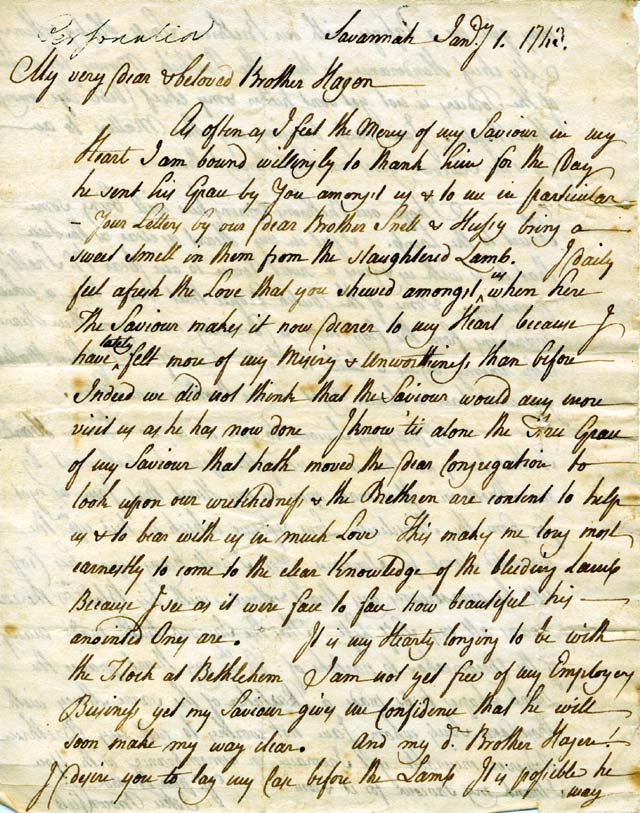 Savannah Jan.ry 1. 1743.
My very Dear & beloved Brother Hagen
As often as I feel the Mercy of my Saviour in my
Heart I am bound willingly to thank him for the Day
he sent his Grace by You amongst us & to me in particular
– Your Letters by our Dear Brother Snell & Hussy bring a
sweet smell in them from the slaughtered Lamb. I daily
feel afresh the Love that you shewed amongst us when here
The Saviour makes it now dearer to my Heart because I
have lately felt more of my Misery & Unworthiness than before
Indeed we did not think that the Saviour would any more
visit us as he has now done I know 'tis alone the Free Grace
of my Saviour that hath moved the Dear Congregation to
look upon our wretchedness & the Brethren are content to help
us & to bear with us in much Love This makes me long most
earnestly to come to the clear Knowledge of the bleeding Lamb
Because I see as it were face to face how beautiful his
anointed Ones are. It is my Hearty longing to be with
the Flock at Bethlehem I am not yet free of my Employers
Business yet my Saviour gives me Confidence that he will
soon make my way clear. And my d.r Brother Hagen!
I Desire you to lay my Case before the Lamb It is possible he
may